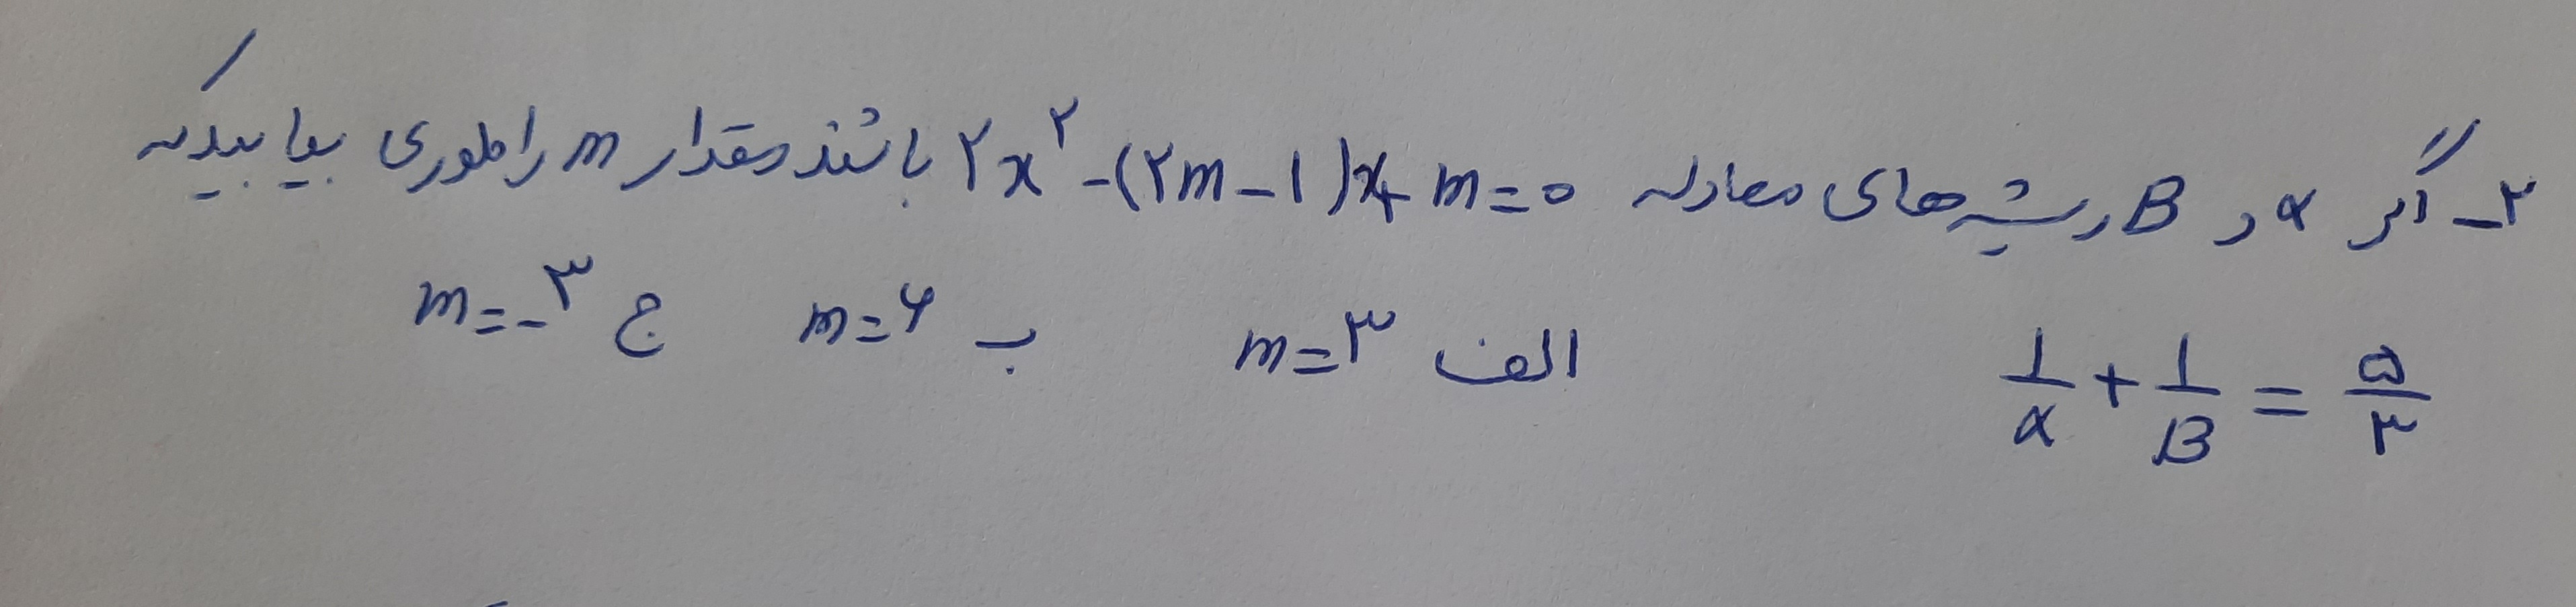 ۲- اگر α و B ریشه‌های معادله ۲x²-(۲m-۱)x+m=۰ باشند مقدار m را طوری بیابیدکه
۱/α + ۱/B = ۵/۳   الف m=۳   ب m=۶   ج m=-۳